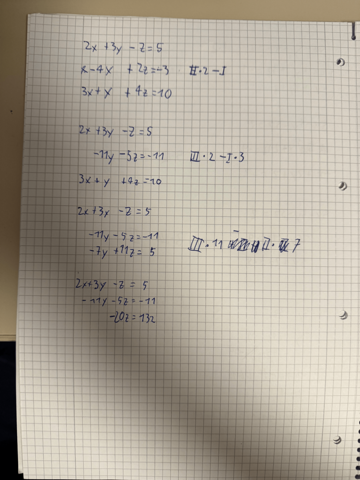 2x + 3y - z = 5
x - 4x + 2z = -3 II · 2 - I
3x + x + 4z = 10
2x + 3y - z = 5
-11y - 5z = -11 III · 2 - I · 3
3x + y + 4z = 10
2x + 3x - z = 5
-11y - 5z = -11
-7y + 11z = 5 III · 11 - II · 7
2x + 3y - z = 5
-11y - 5z = -11
-20z = 132